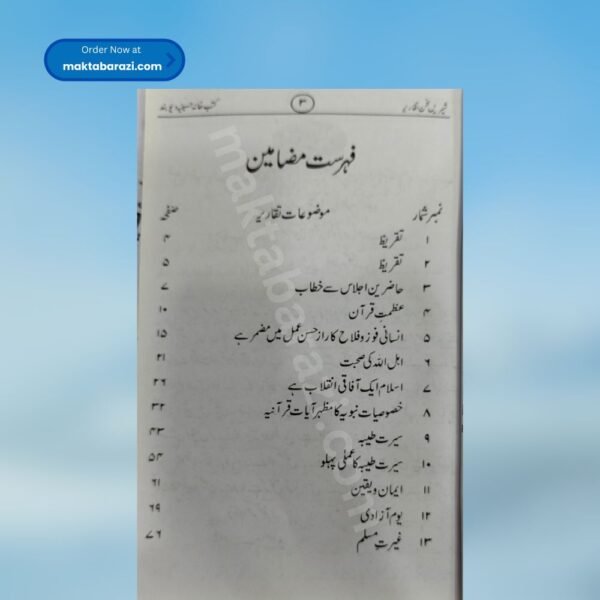 Order Now at
maktabarazi.com
شیریں سخن تقاریر ۳ کتب خانہ حسینیہ دیوبند
فہرست مضامین
نمبر شمار موضوعات تقاریر صفحہ
۱ تقریظ ۴
۲ تقریظ ۵
۳ حاضرین اجلاس سے خطاب ۷
۴ عظمت قرآن ۱۰
۵ انسانی فوز و فلاح کا راز حسن عمل میں مضمر ہے ۱۵
۶ اہل اللہ کی صحبت ۲۱
۷ اسلام ایک آفاقی انقلاب ہے ۲۶
۸ خصوصیات نبویہ کا مظہر آیات قرآنیہ ۳۲
۹ سیرت طیبہ ۴۳
۱۰ سیرت طیبہ کا عملی پہلو ۵۴
۱۱ ایمان و یقین ۶۱
۱۲ یوم آزادی ۶۹
۱۳ غیرت مسلم ۷۶
maktabarazi.com